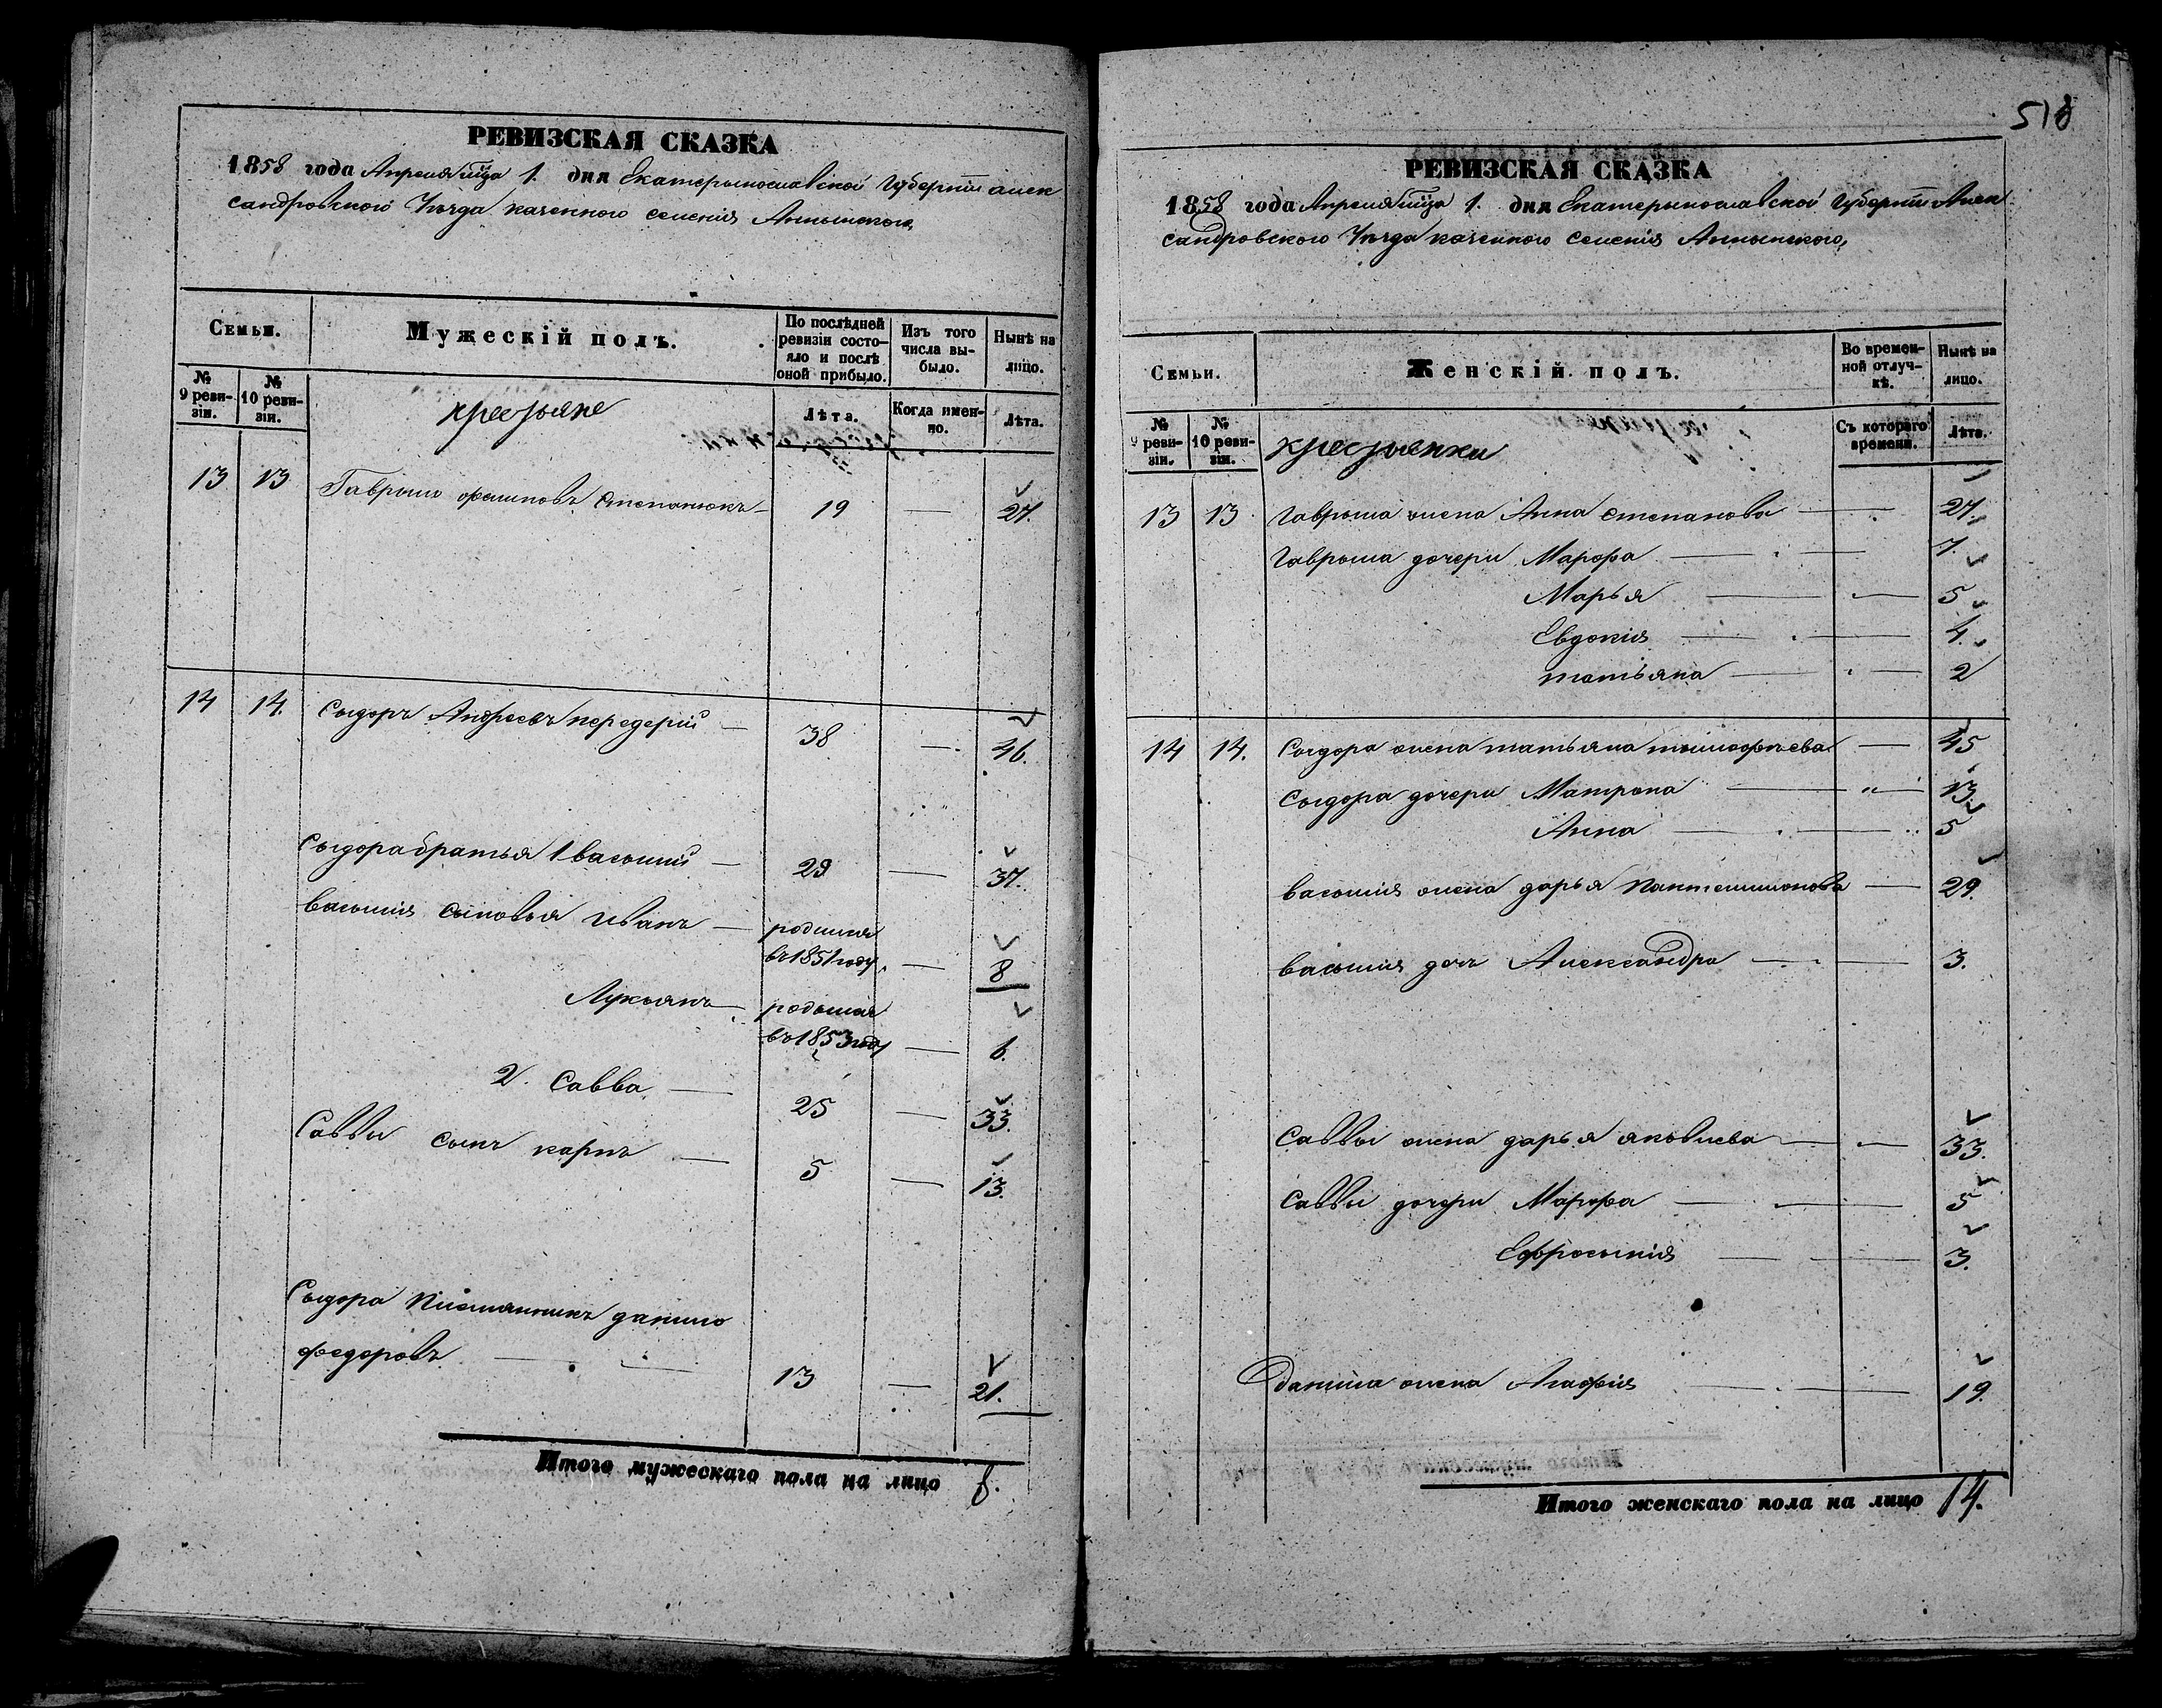 518
РЕВИЗСКАЯ СКАЗКА
1858 года Апреля мца 1. дня Екатерынославской Губерніи Алек
сандровского Уезда казенного селенія Аннынского,
Семьи.
Мужескій полъ.
По послѣдней ревизіи состояло и послѣ оной прибыло.
Изъ того числа выбыло.
Нынѣ на лицо.
№ 9 ревизіи.
№ 10 ревизіи.
крестьяне
Лѣта.
Когда именно.
Лѣта.
13 13 Гаврыло филиповъ Степанюкъ — 19 — 27.
14 14. Сыдоръ Андреевъ передерій — 38 — 46.
Сыдора братья 1 василий — 29 — 37.
василия сыновья Иванъ — родился
въ 1851 году. — 8
Лукьянъ — родился
въ 1853 году — 6.
2. Савва — 25 — 33.
Саввы сынъ карпъ — 5 — 13.
Сыдора племянникъ данило
федоровъ — 13 — 21.
Итого мужескаго пола на лицо 8.
РЕВИЗСКАЯ СКАЗКА
1858 года Апреля мца 1. дня Екатерыпославской Губерніи Алек
сандровского Уезда казенного селенія Аннынского,
Семьи.
Женскій полъ.
Во временной отлучкѣ.
Нынѣ на лицо.
№ 9 ревизіи.
№ 10 ревизіи.
крестьянки
Съ котораго времени.
Лѣта.
13 13 Гаврыла жена Анна степанова — 27.
Гаврыла дочери Марфа — 7.
Марья — 5
Евдокия — 4.
татьяна — 2
14 14. Сыдора жена татьяна тимофеева — 45
Сыдора дочери Матрона — " — 13.
Анна — 5
василия жена дарья Пантелимонова — 29.
василия дочь Александра — 3.
Саввы жена дарья яковлева — 33.
Саввы дочери Марфа — 5
Ефросыния — 3.
данила жена Агафия — 19.
Итого женскаго пола на лицо 14.